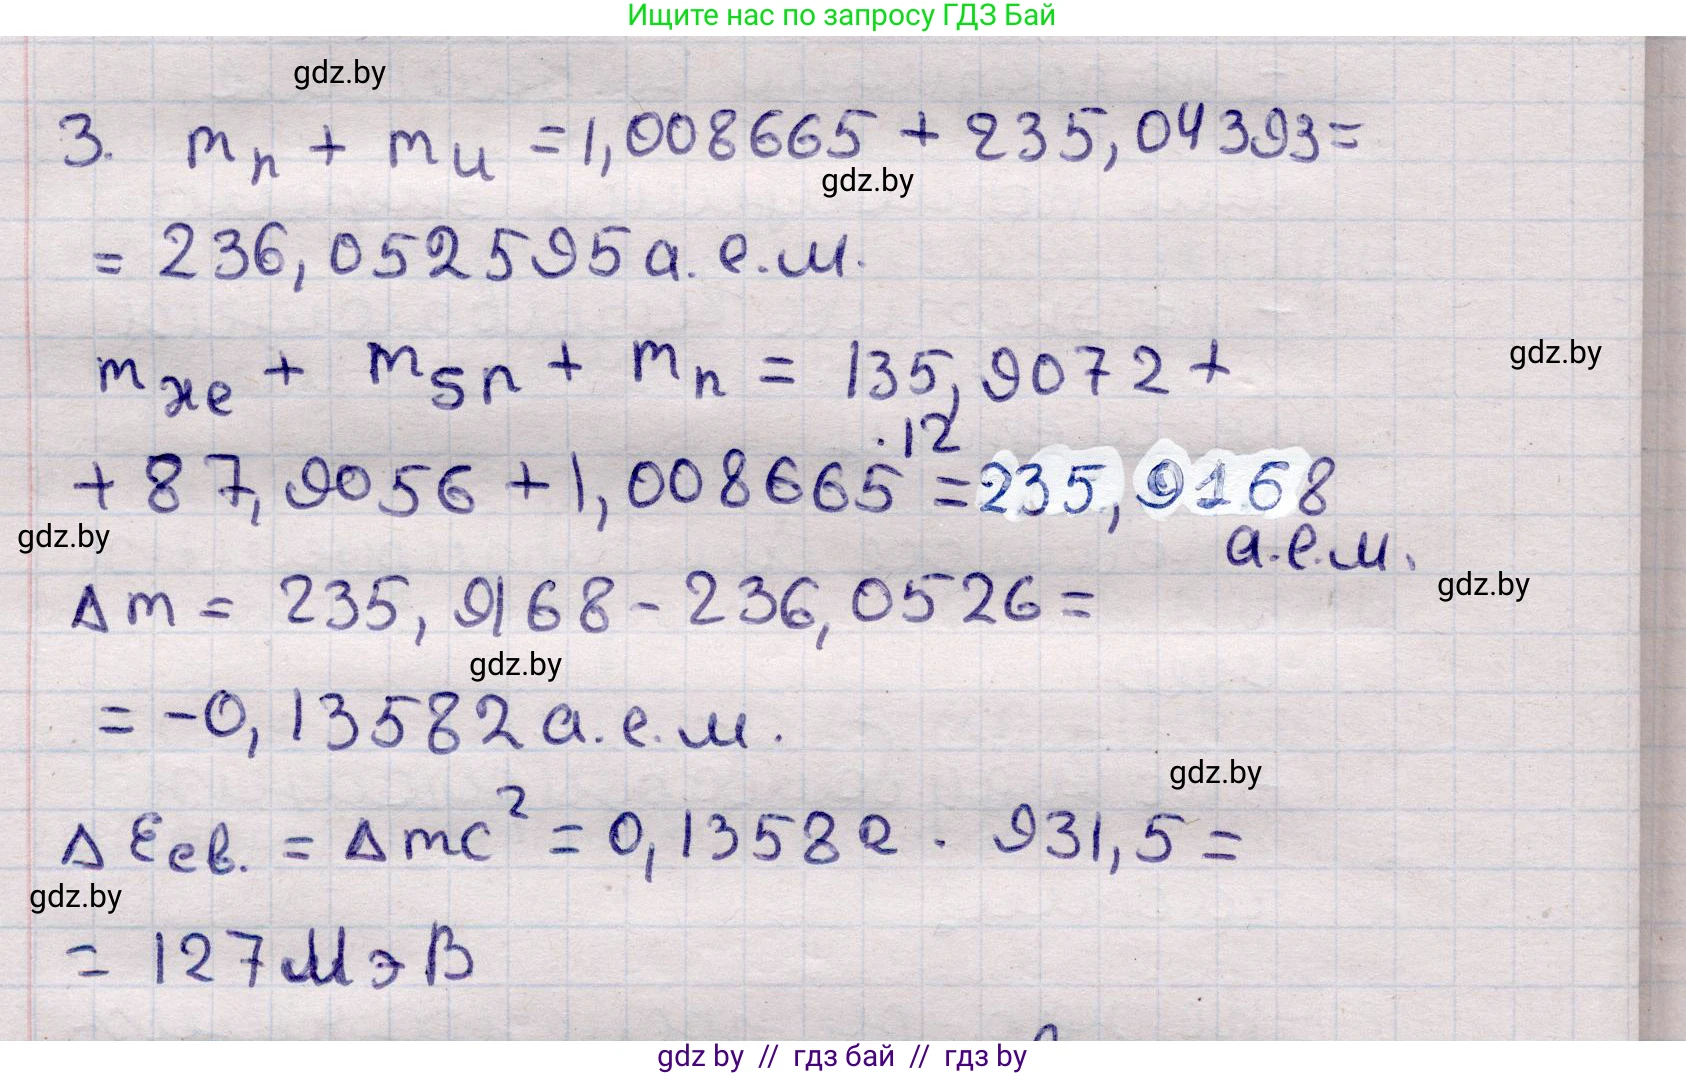 Ищите нас по запросу ГДЗ Бай
gdz.by
3. mn + mu = 1,008665 + 235,04393 =
gdz.by
= 236,052595 а.е.м.
mxe + m5n + mn = 135,9072 +
gdz.by
+ 87,9056 + 1,008665 · 12 = 235,9168
а.е.м.
gdz.by
gdz.by
Δm = 235,9168 - 236,0526 =
gdz.by
= -0,13582 а.е.м.
gdz.by
ΔEсв. = Δmc² = 0,13582 · 931,5 =
gdz.by
= 127 МэВ
gdz by // гдз бай // гдз by